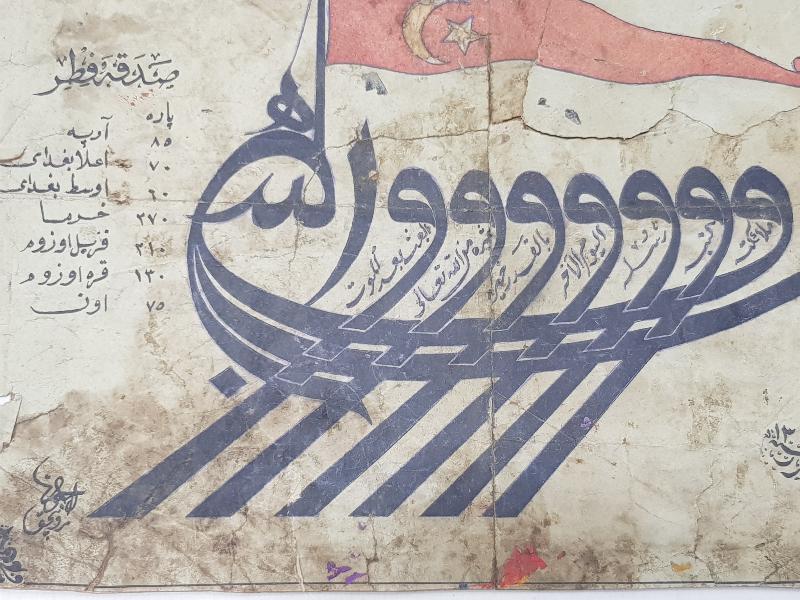 صدقهٔ فطر
پاره
آرپه ٨٥
اعلا بغدای ٧٠
اوسط بغدای ٦٠
خرما ٢٧٠
قزیل اوزوم ٢١٠
قره اوزوم ١٣٠
اون ٧٥
الله
و و و و و و و
ملائكته
كتبه
رسله
اليوم الآخر
بالقدر خيره
من الله تعالى
والبعث بعد الموت